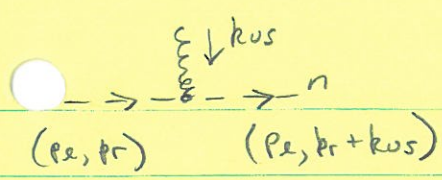 kus
n
(pe, pr)
(pe, kr + kus)